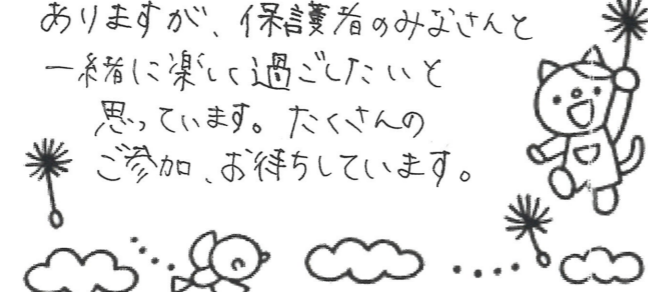 ありますが、保護者のみなさんと
一緒に楽しく過ごしたいと
思っています。たくさんの
ご参加、お待ちしています。